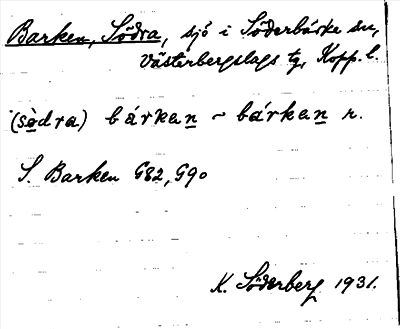 Barken, Södra, sjö i Söderbärke sn,
Västerbergslags tg, Kopp. l.
(södra) bárken ~ bárken n.
S. Barken G82, G90
K. Söderberg 1931.